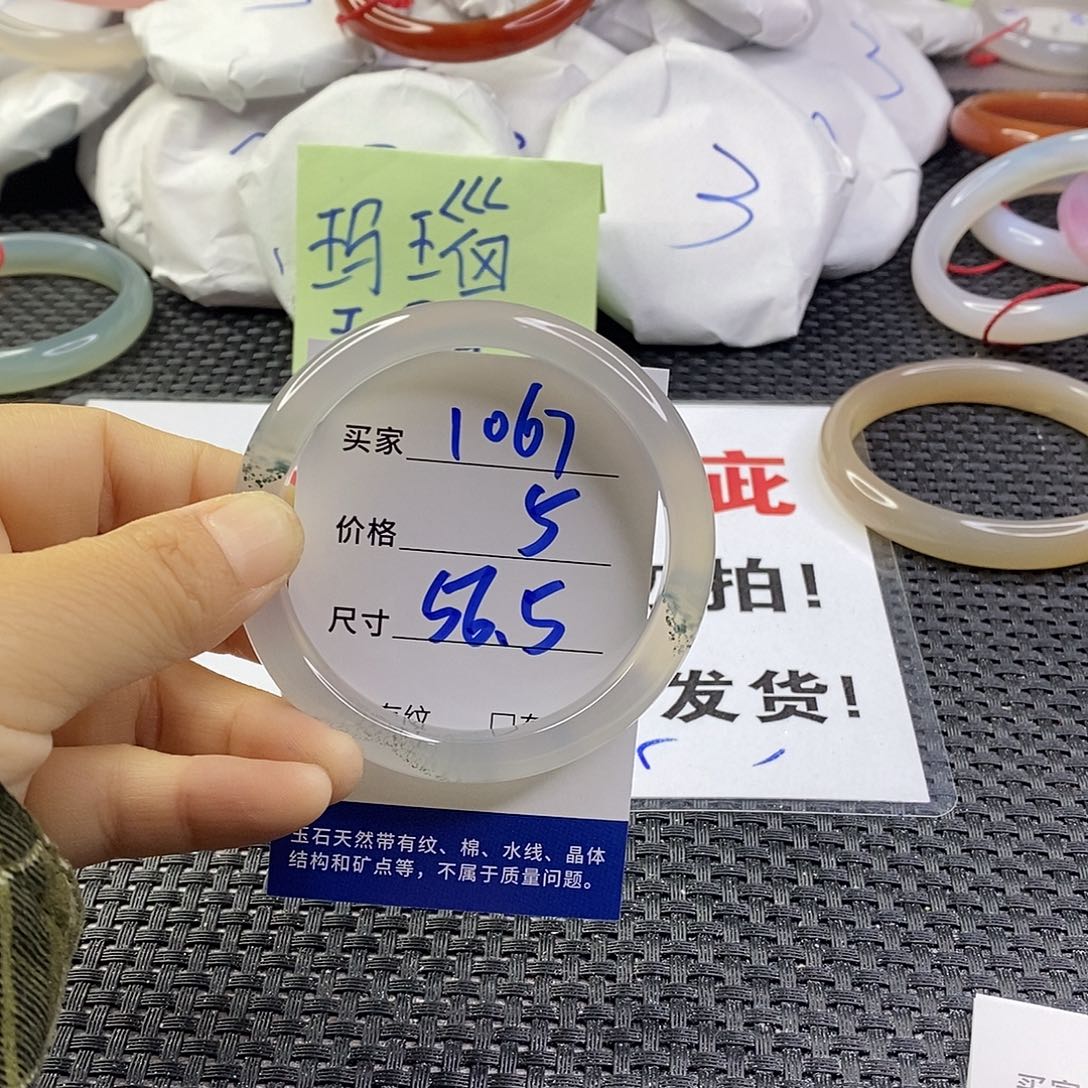 3
3
玛瑙
买家 1067
价格 5
尺寸 56.5
有纹 口有
此
拍!
发货!
玉石天然带有纹、棉、水线、晶体
结构和矿点等，不属于质量问题。
买家